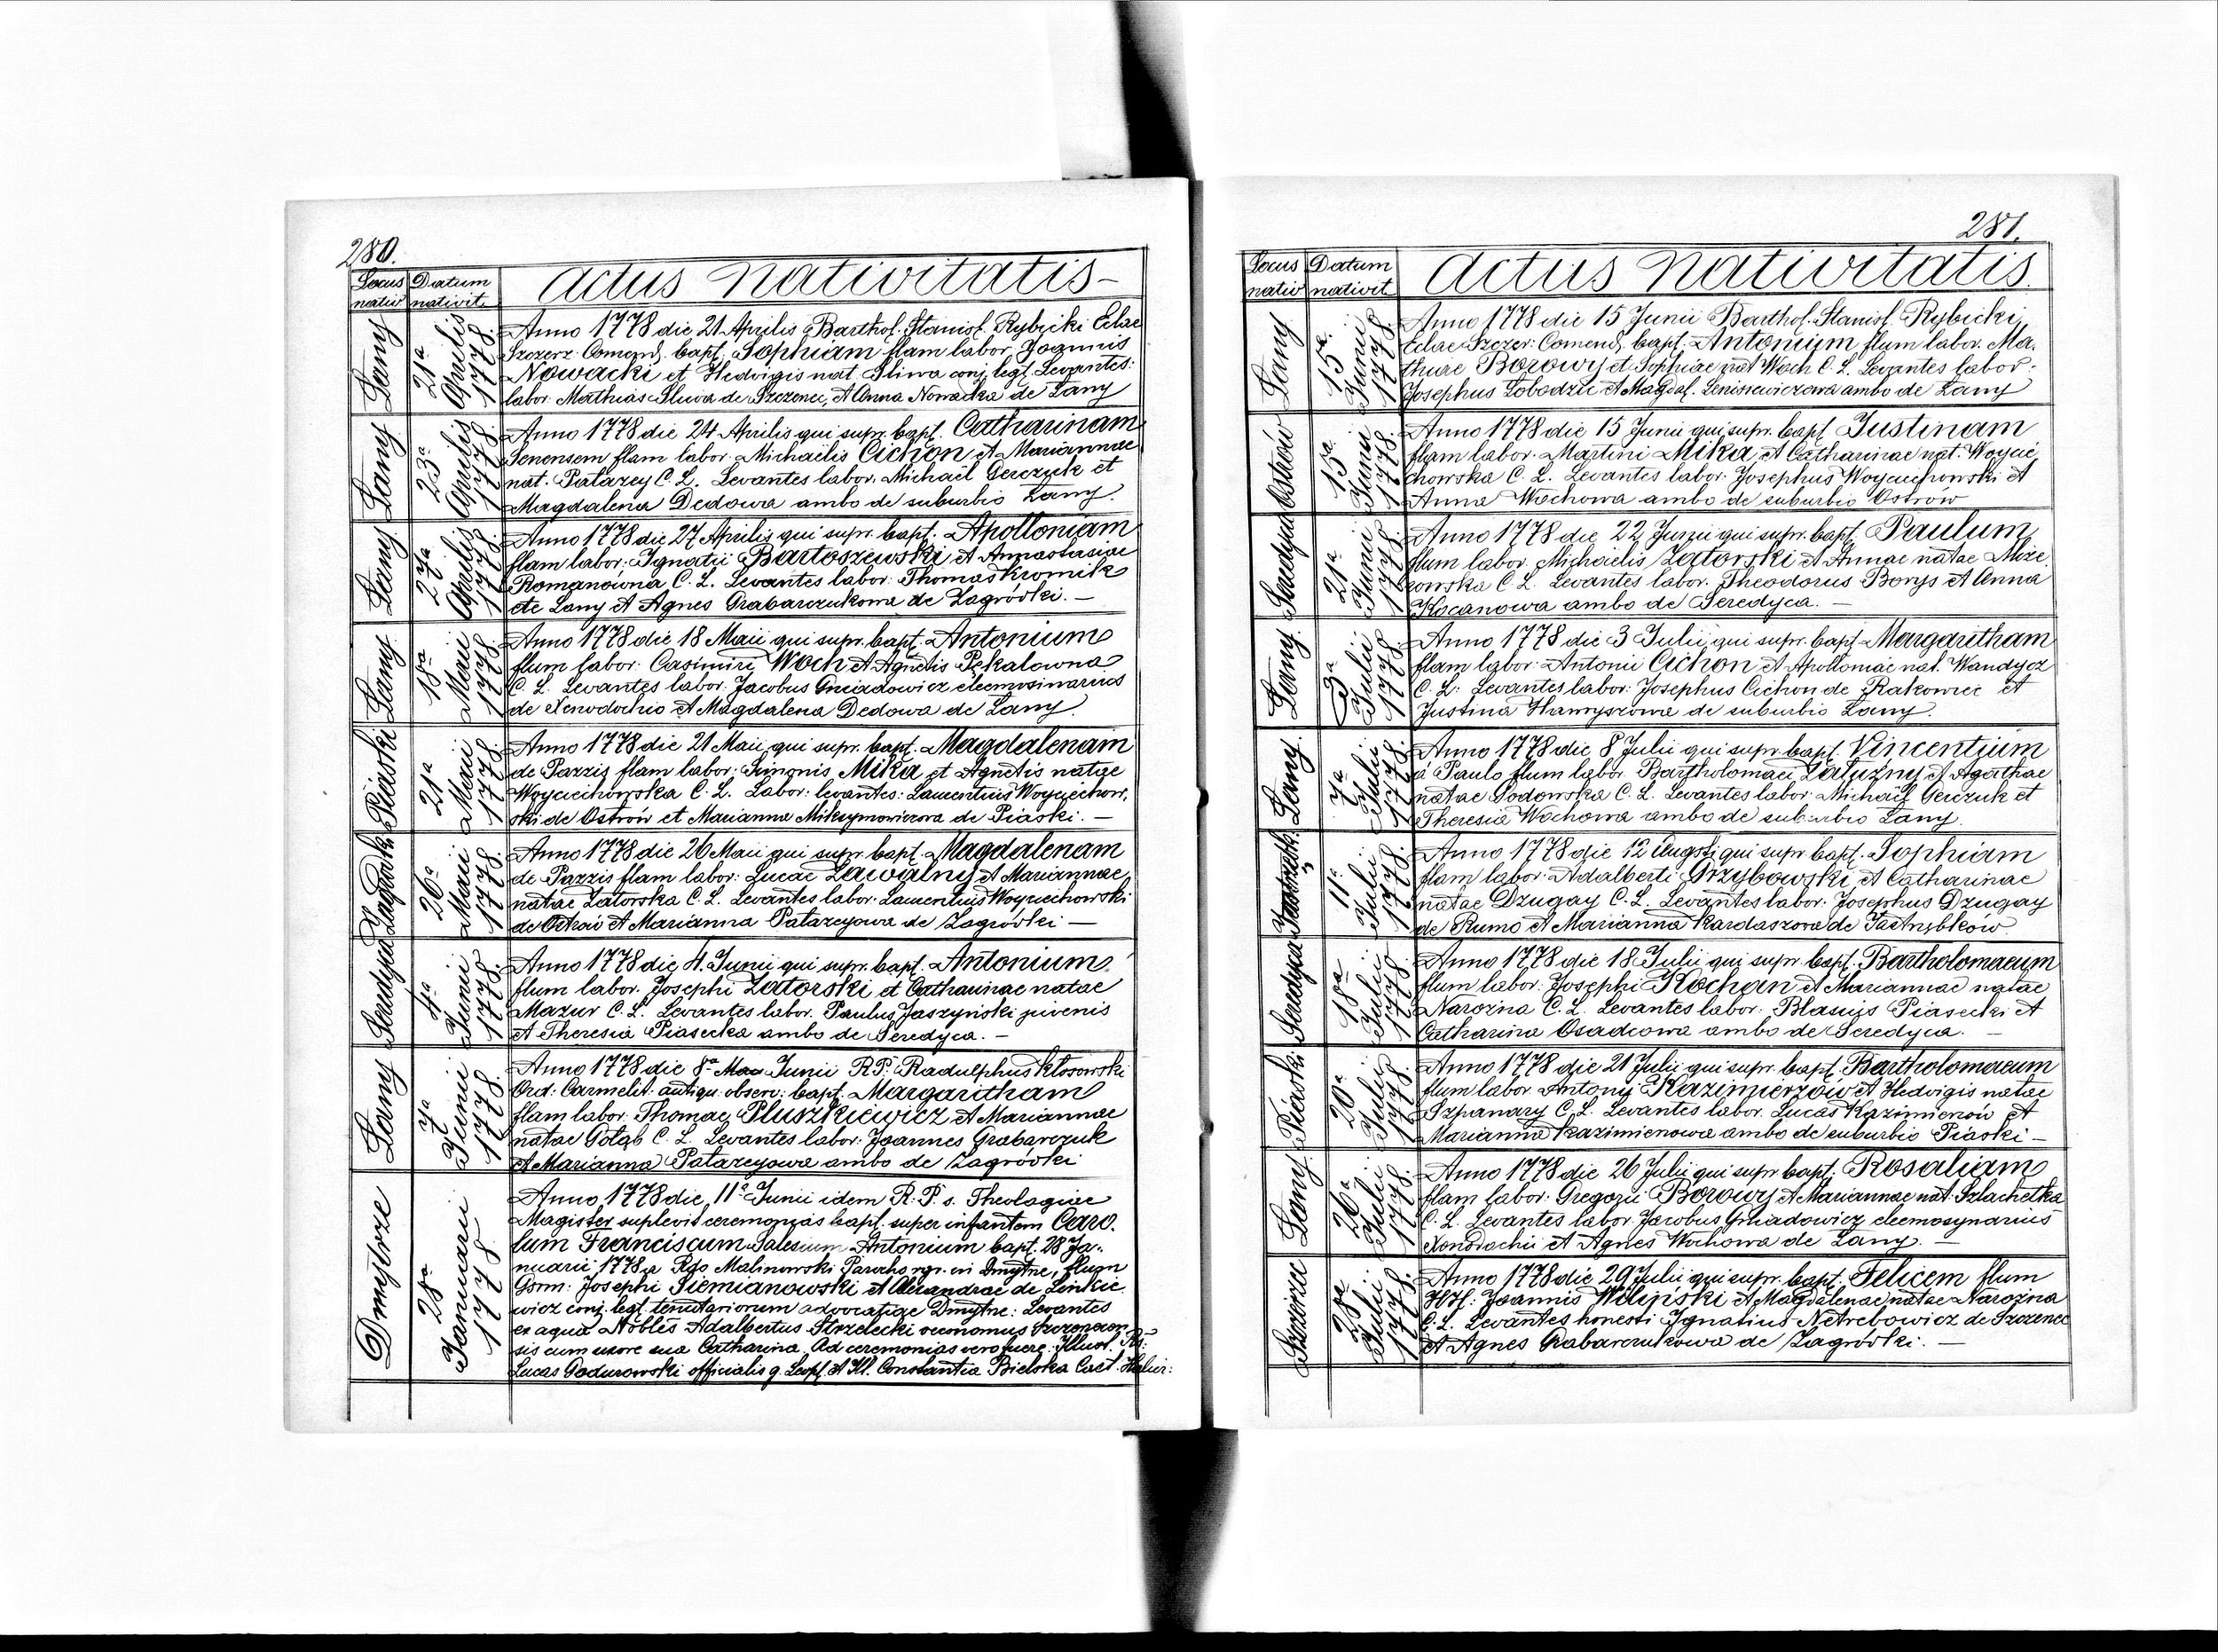 280.
Locus nativ
Datum nativit
Actus nativitatis
Łany
21ª Aprilis 1778.
Anno 1778 die 21 Aprilis Barthol. Stanisl. Rybicki Eclae
Szczerz. Comend. bapt. Sophiam flam labor. Joannis
Nowacki et Hedvigis nat. Sliwa conj. legt. Levantes:
labor. Mathias Sliwa de Szczerzec, et Anna Nowacka de Łany
Łany
23ª Aprilis 1778.
Anno 1778 die 24 Aprilis qui supr. bapt. Catharinam
Senensem flam labor. Michaelis Cichon et Mariannae
nat. Patarey C. L. Levantes labor. Michaël Gerczuk et
Magdalena Dedowa ambo de suburbio Łany.
Łany
27ª Aprilis 1778.
Anno 1778 die 27 Aprilis qui supr. bapt. Apolloniam
flam labor. Ignatii Bartoszewski et Annastasiae
Romanowna C. L. Levantes labor. Thomas Kromik
de Łany et Agnes Grabarczukowa de Zagródki. —
Łany
18ª Maii 1778.
Anno 1778 die 18 Maii qui supr. bapt. Antonium
flum labor. Casimiri Woch et Agnetis Pękalowna
C. L. Levantes labor. Jacobus Gniadowicz eleemosinarius
de Xenodochio et Magdalena Dedowa de Łany.
Piaski
21ª Maii 1778.
Anno 1778 die 21 Maii qui supr. bapt. Magdalenam
de Pazzis flam labor. Simonis Mika et Agnetis natae
Woyciechowska C. L. Labor: levantes: Laurentius Woyciechow,
ski de Ostrów et Marianna Miksymowiczowa de Piaski. —
Zagródki
26ª Maii 1778.
Anno 1778 die 26 Maii qui supr. bapt. Magdalenam
de Pazzis flam labor: Lucae Zawalny et Mariannae,
natae Zatorska C. L. Levantes labor. Laurentius Woyciechowski
de Ostrów et Marianna Patareyowa de Zagródki —
Seredyca
4ª Junii 1778.
Anno 1778 die 4. Junii qui supr. bapt. Antonium
flum labor. Josephi Zatorski et Catharinae natae
Mazur C. L. Levantes labor. Paulus Jaszyński juvenis
et Theresia Piasecka ambo de Seredyca. —
Łany
7ª Junii 1778.
Anno 1778 die 8ª Junii R. P. Radulphus Kłosowski
Ord: Carmelit. antiqu. observ: bapt. Margaritham
flam labor. Thomae Pluszkiewicz et Mariannae
natae Gołąb C. L. Levantes labor: Joannes Grabarczuk
et Marianna Patareyowa ambo de Zagródki
Dmytrze
28ª Januarii 1778.
Anno 1778 die 11ª Junii idem R. P. s. Theologiae
Magister suplevit ceremonias bapt. super infantem Caro.
lum Franciscum Salesium Antonium bapt. 28 Ja-
nuarii 1778 a Rdo Malinowski Parocho in Dmytrze, flum
Gsrm: Josephi Siemianowski et Alexandrae de Linkie
wicz conj. legt. tenutariorum advocatiae Dmytrze: Levantes
ex aqua Nobles Adalbertus Strzelecki oeconomus Szczercen
sis cum uxore sua Catharina. Ad ceremonias vero fuere: Illustr. Rs:
Lucas Godurowski officialis g. Leopl. et Ill. Constantia Bielska Cast. Halic:
281.
Locus nativ
Datum nativit
Actus nativitatis.
Łany
15ª Junii 1778.
Anno 1778 die 15 Junii Barthol. Stanisl. Rybicki
Eclae Szczer: Comend. bapt. Antonium flum labor. Ma.
thiae Borowy et Sophiae nat. Woch C. L. Levantes labor:
Josephus Łobodzic et Magdal. Lenisiewiczowa ambo de Łany
Ostrów
15ª Junii 1778.
Anno 1778 die 15 Junii qui supr. bapt. Justinam
flam labor. Martini Mika et Catharinae nat. Woycie
chowska C. L. Levantes labor: Josephus Woyciechowski et
Anna Wochowa ambo de suburbio Ostrów
Seredyca
21ª Junii 1778.
Anno 1778 die 22 Junii qui supr. bapt. Paulum
flum labor. Michaelis Zatorski et Annae natae Mize
rowska C. L. Levantes labor. Theodorus Borys et Anna
Kocanowa ambo de Seredyca. —
Łany
3ª Julii 1778.
Anno 1778 die 3 Julii qui supr. bapt. Margaritham
flam labor: Antonii Cichon et Apolloniae nat. Wandycz
C. L: Levantes labor: Josephus Cichon de Rakowiec et
Justina Hawryszowa de suburbio Łany.
Łany
7ª Julii 1778.
Anno 1778 die 8 Julii qui supr. bapt. Vincentium
à Paulo flum labor. Bartholomaei Załużny et Agathae
natae Sodowska C. L. Levantes labor. Michaël Gerczuk et
Theresia Wochowa ambo de suburbio Łany.
Jastrzębk.
11ª Julii 1778.
Anno 1778 die 12 Augsti qui supr. bapt. Sophiam
flam labor. Adalberti Grzybowski et Catharinae
natae Dzugay C. L. Levantes labor: Josephus Dzugay
de Rumo et Marianna Kardaszowa de Jastrzębków
Seredyca
18ª Julii 1778
Anno 1778 die 18 Julii qui supr. bapt. Bartholomaeum
flum labor: Josephi Kochan et Mariannae natae
Narożna C. L. Levantes labor: Blasius Piasecki et
Catharina Osadcowa ambo de Seredyca. —
Piaski
20ª Julii 1778.
Anno 1778 die 21 Julii qui supr. bapt. Bartholomaeum
flum labor. Antonij Kazimierzów et Hedvigis natae
Szpanary C. L. Levantes labor. Lucas Kazimierzów et
Marianna Kazimierzowa ambo de suburbio Piaski —
Łany
26ª Julii 1778.
Anno 1778 die 26 Julii qui supr. bapt. Rosaliam
flam labor: Gregorii Borowy et Mariannae nat. Szlachetka
C. L. Levantes labor. Jacobus Gniadowicz eleemosynarius
Xenodochii et Agnes Wochowa de Łany. —
Szczerzec
28ª Julii 1778.
Anno 1778 die 29 Julii qui supr. bapt. Felicem flum
HH: Joannis Wilipski et Magdalenae natae Narożna
C. L. Levantes honesti Ignatius Netrebowicz de Szczerzec
et Agnes Grabarczukowa de Zagródki. —